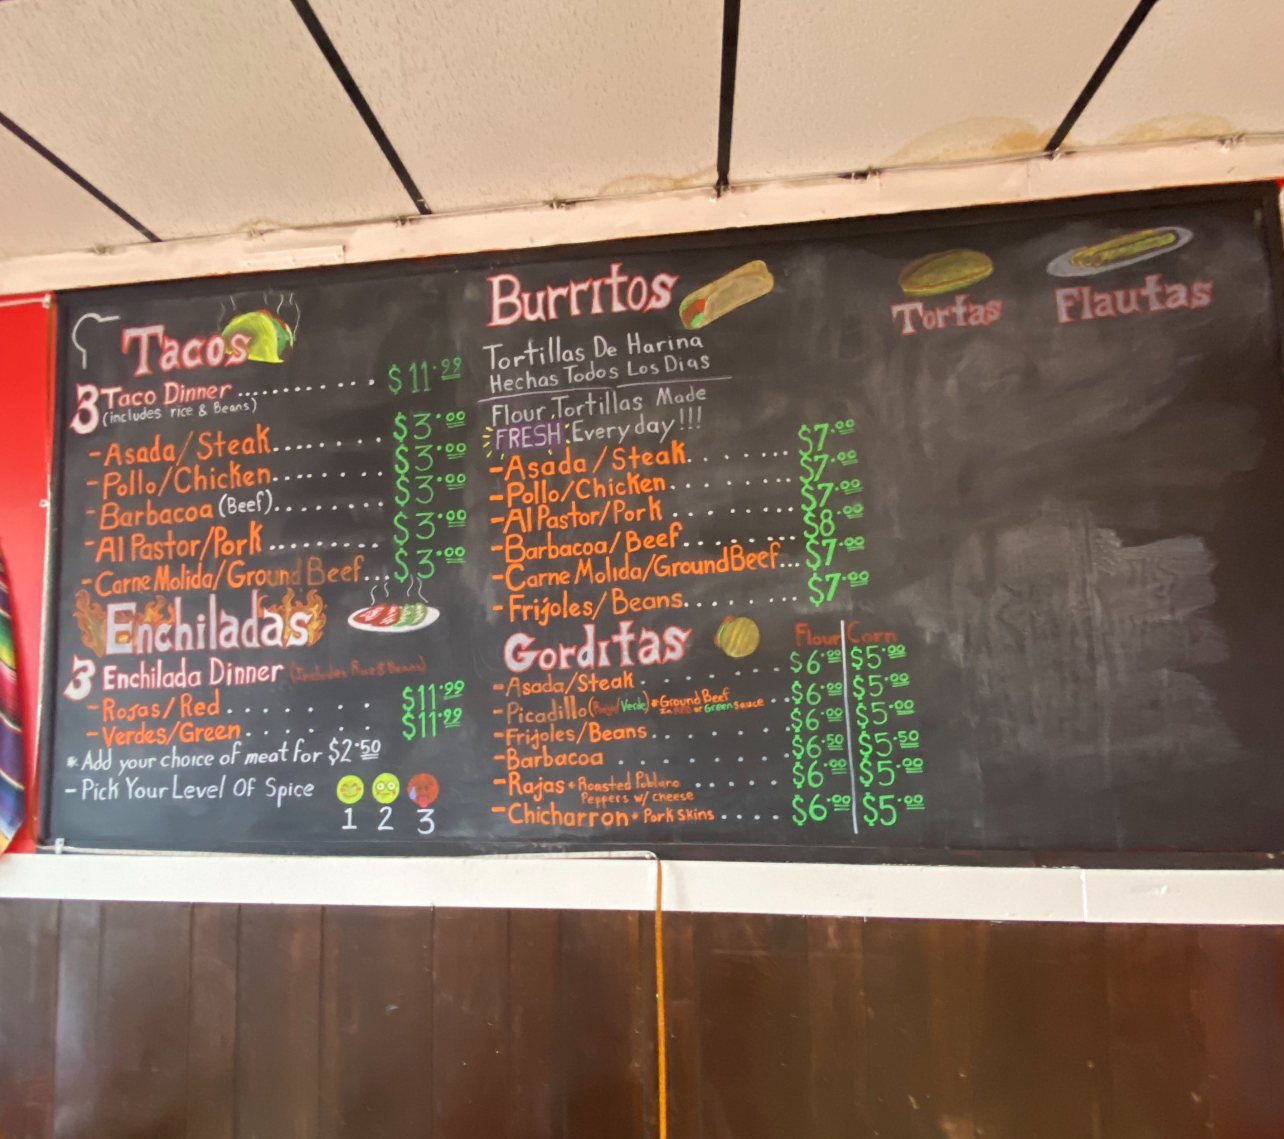 Tacos
3 Taco Dinner .......... $11.99
(includes rice & Beans)
-Asada/Steak....... $3.00
-Pollo/Chicken....... $3.00
-Barbacoa (Beef)....... $3.00
-Al Pastor/Pork ........ $3.00
-Carne Molida/Ground Beef.... $3.00
Enchiladas
3 Enchilada Dinner (Includes Rice & Beans)
-Rojas/Red ....... $11.99
-Verdes/Green ...... $11.99
*Add your choice of meat for $2.50
-Pick Your Level Of Spice
1 2 3
Burritos
Tortillas De Harina
Hechas Todos Los Dias
Flour Tortillas Made
FRESH Everyday!!!
-Asada/Steak....... $7.00
-Pollo/Chicken........ $7.00
-Al Pastor/Pork ........ $7.00
-Barbacoa/Beef....... $8.00
-Carne Molida/Ground Beef... $7.00
-Frijoles/Beans....... $7.00
Gorditas
Flour Corn
-Asada/Steak ....... $6.00 $5.00
-Picadillo (Rojo/Verde) *Ground Beef .. $6.00 $5.00
In RED or Green Sauce
-Frijoles/Beans........ $6.00 $5.00
-Barbacoa ........ $6.50 $5.50
-Rajas *Roasted Poblano ...... $6.00 $5.00
Peppers w/ cheese
-Chicharron * Pork skins .... $6.00 $5.00
Tortas
Flautas